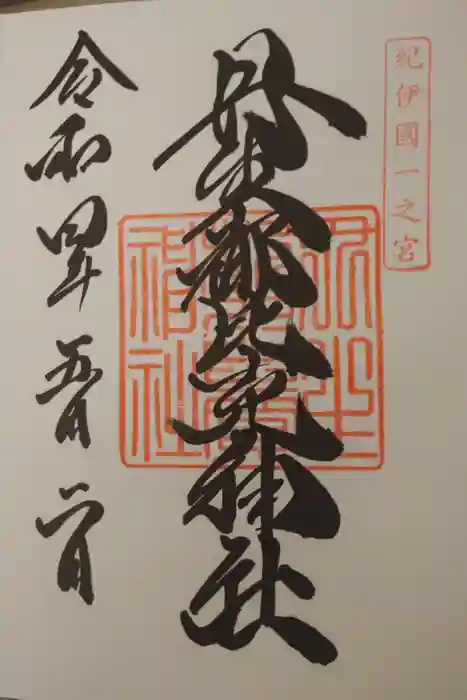 紀伊國一之宮
丹生都比売神社
丹生都比賣神社
令和四年五月日